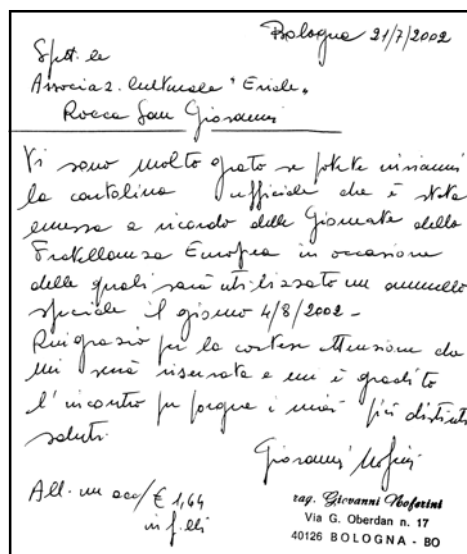 Bologna 21/7/2002
Spett.le
Associaz. Culturale "Eride"
Rocca San Giovanni
Vi sono molto grato se potete inviarmi
la cartolina ufficiale che è stata
emessa a ricordo delle Giornate della
Fratellanza Europea in occasione
delle quali sarà utilizzato un annullo
speciale il giorno 4/8/2002 -
Ringrazio per la cortese attenzione che
mi sarà riservata e mi è gradito
l'incontro per porgere i miei più distinti
saluti.
Giovanni Noferini
All. un acc/ € 1,64
in f.lli
rag. Giovanni Noferini
Via G. Oberdan n. 17
40126 BOLOGNA - BO